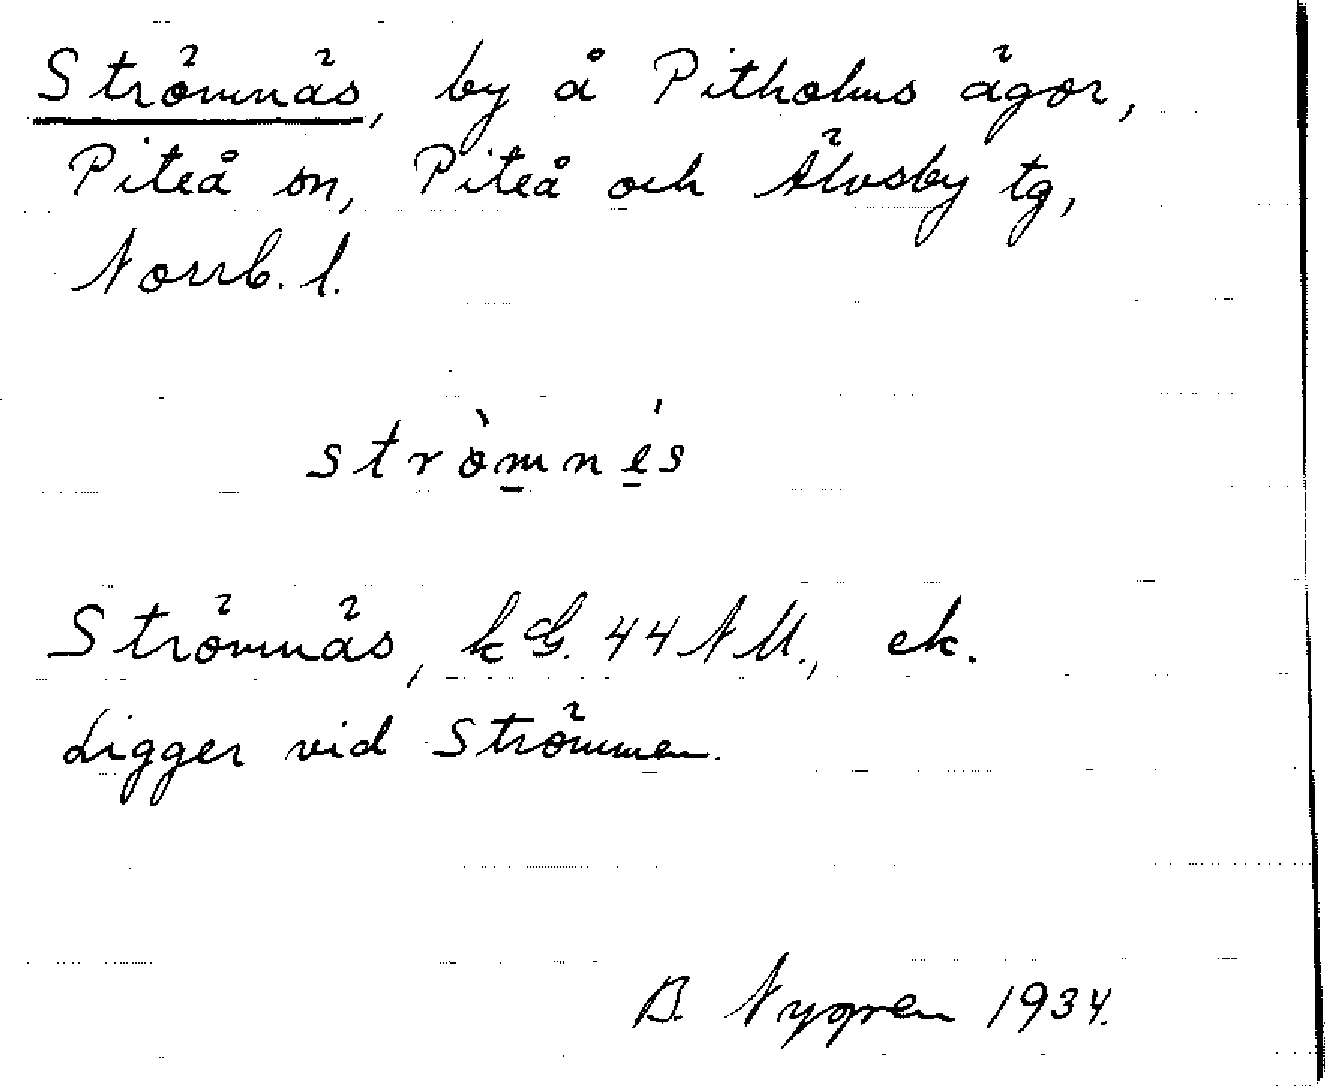 Strömnäs, by å Pitholms ägor,
Piteå sn, Piteå och Älvsby tg,
Norrb. l.
strömnes
Strömnäs, k G. 44 NU., ek.
Ligger vid Strömmen.
B. Nygren 1934.